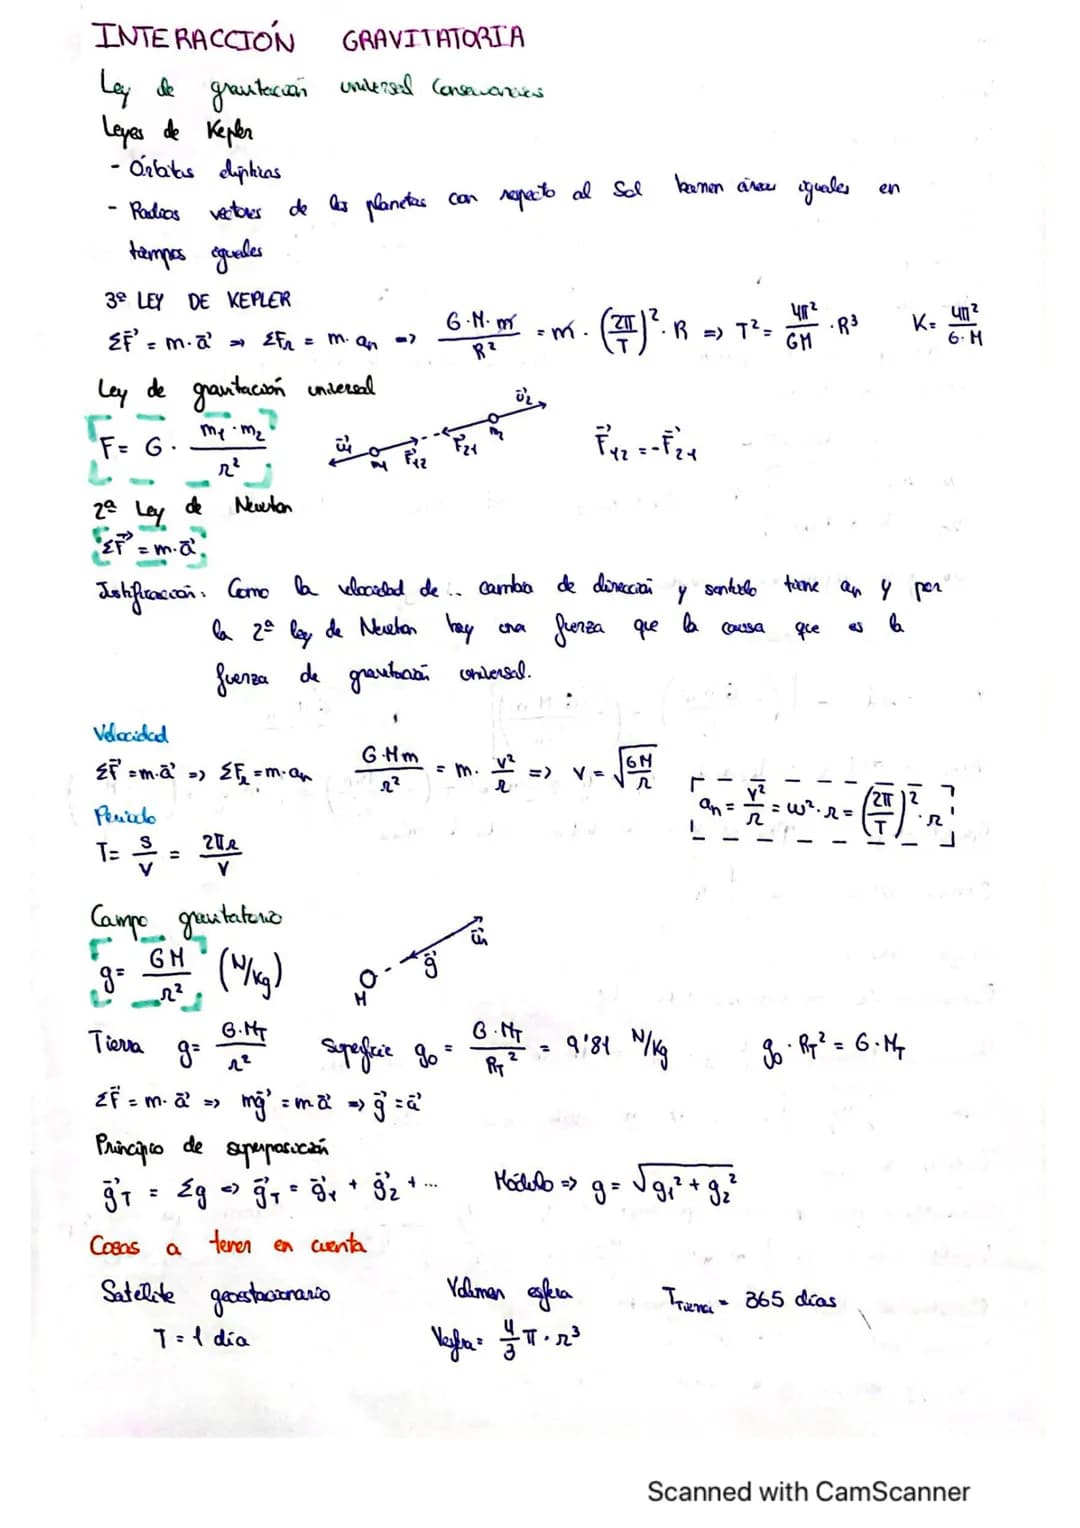 INTERACCIÓN GRAVITATORIA
Ley de gravitación universal
Leyes de Kepler
- Órbitas elípticas
- Radios vectores de los planetas con respecto al Sol barren áreas iguales en
tiempos iguales
3ª LEY DE KEPLER
ΣF⃗ = m·a⃗ => ΣFn = m·an => G·M·m/R² = m·(2π/T)²·R => T² = 4π²/GM ·R³ K= 4π²/G·M
Ley de gravitación universal
F = G · m1·m2/r² u⃗1 m1 F⃗12 F⃗21 m2 u⃗2 F⃗12 = -F⃗21
2ª Ley de Newton
ΣF⃗ = m·a⃗
Justificación: Como la velocidad de ... cambia de dirección y sentido tiene an y por
la 2ª ley de Newton hay una fuerza que la causa que es la
fuerza de gravitación universal.
Velocidad
ΣF⃗ = m·a⃗ => ΣFn = m·an G·Mm/r² = m· v²/r => v = √(GM/r)
an = v²/r = ω²·r = (2π/T)²·r
Periodo
T = s/v = 2πr/v
Campo gravitatorio
g = GM/r² (N/kg) M g⃗ u⃗r
Tierra g = G·MT/r² Superficie g0 = G·MT/RT² = 9'81 N/kg g0·RT² = G·MT
ΣF⃗ = m·a⃗ => mg⃗ = ma⃗ => g⃗ = a⃗
Principio de superposición
g⃗T = Σg => g⃗T = g⃗1 + g⃗2 + ... Módulo => g = √(g1² + g2²)
Cosas a tener en cuenta
Satélite geoestacionario Volumen esfera TTierra = 365 días
T = 1 día Vesfra = 4/3 π·r³
Scanned with CamScanner